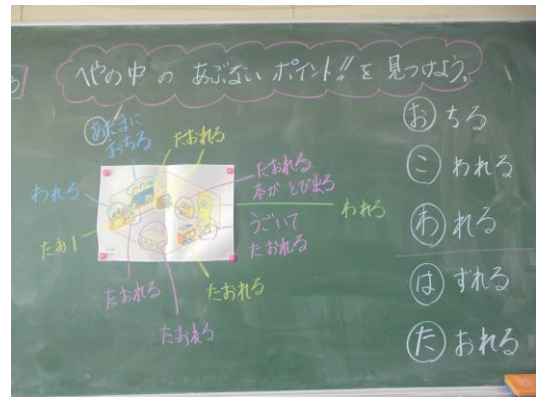 へやの中の あぶない ポイント!!を 見つけよう。
あたまに
おちる
たおれる
われる
たおれる
本が とび出る
われる
うごいて
たおれる
たお
たおれる
たおれる
たおれる
おちる
こわれる
われる
はずれる
たおれる